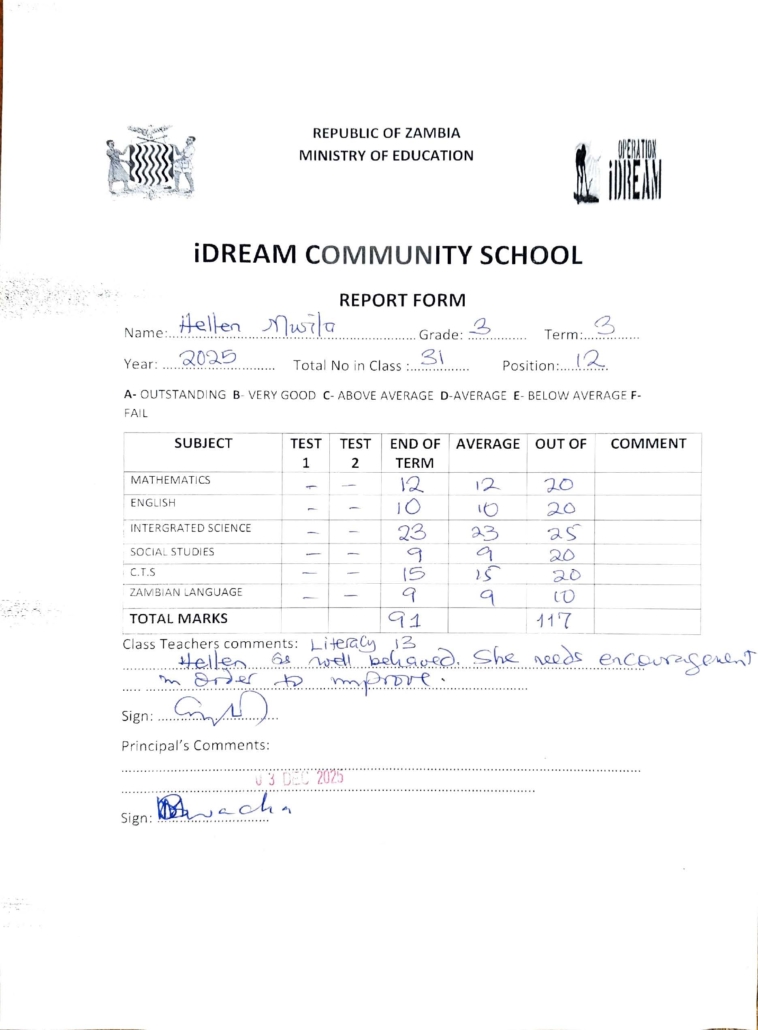 REPUBLIC OF ZAMBIA
MINISTRY OF EDUCATION
OPERATION
iDREAM
iDREAM COMMUNITY SCHOOL
REPORT FORM
Name: Hellen Mwila Grade: 3 Term: 3
Year: 2025 Total No in Class : 31 Position: 12
A- OUTSTANDING B- VERY GOOD C- ABOVE AVERAGE D-AVERAGE E- BELOW AVERAGE F-
FAIL
SUBJECT TEST 1 TEST 2 END OF TERM AVERAGE OUT OF COMMENT
MATHEMATICS – – 12 12 20
ENGLISH – – 10 10 20
INTERGRATED SCIENCE – – 23 23 25
SOCIAL STUDIES – – 9 9 20
C.T.S – – 15 15 20
ZAMBIAN LANGUAGE – – 9 9 10
TOTAL MARKS 91 117
Class Teachers comments: Literacy 13
Hellen is well behaved. She needs encouragement
in order to improve.
Sign:
Principal's Comments:
03 DEC 2025
Sign: